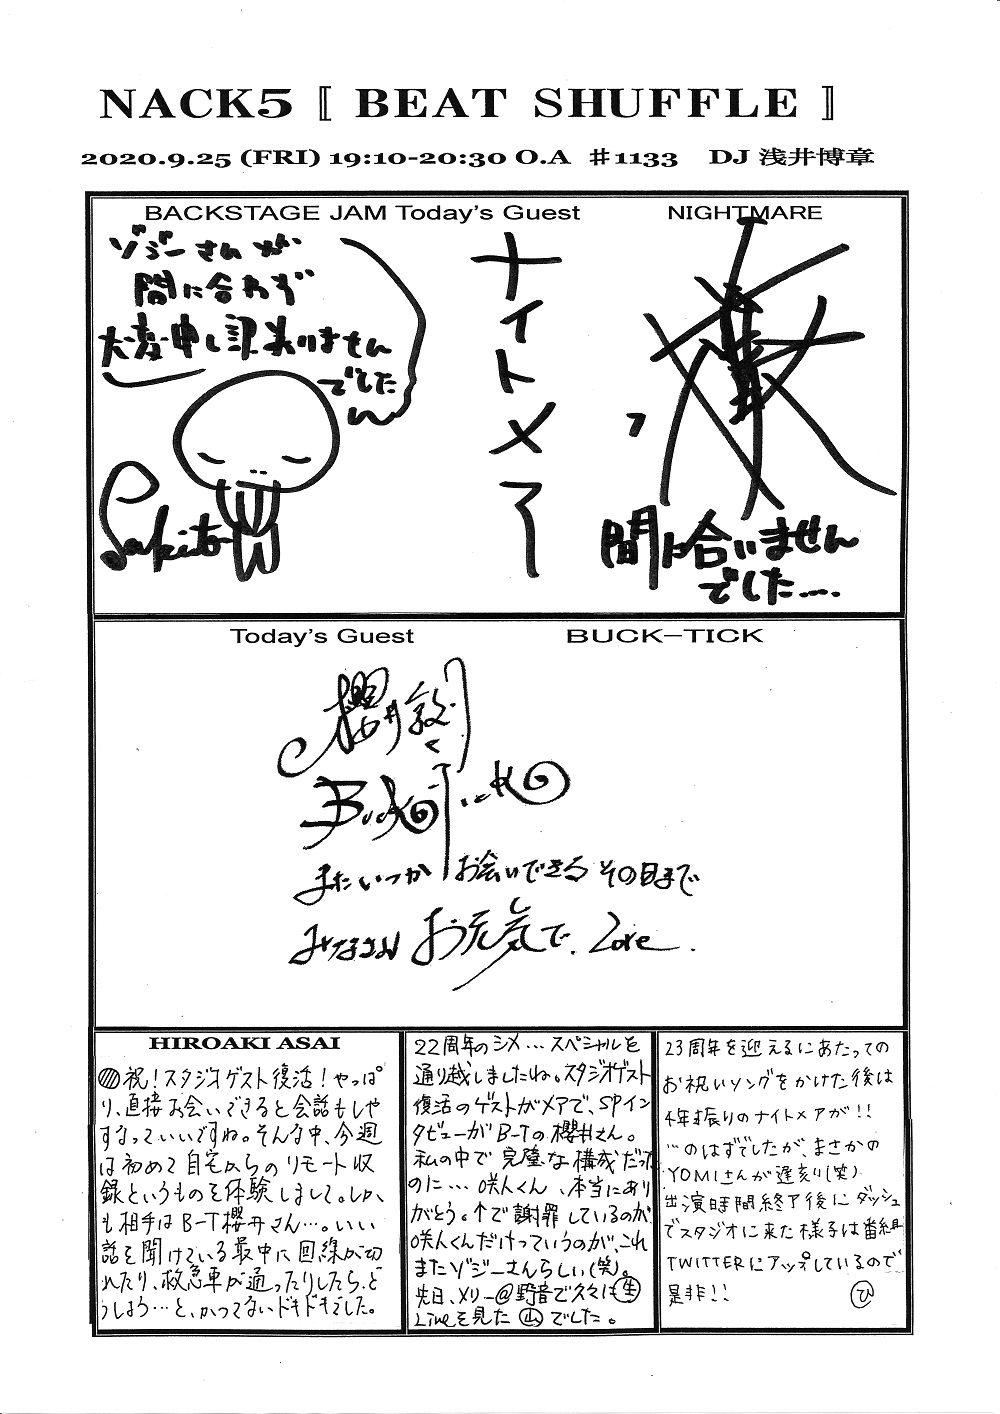 NACK5 〚 BEAT SHUFFLE 〛
2020.9.25 (FRI) 19:10-20:30 O.A ♯1133 DJ 浅井博章
BACKSTAGE JAM Today's Guest NIGHTMARE
ゾジーさんが
間に合わず
大変申し訳ありません
でした
Sakito
ナイトメア
間に合いません
でした....
Today's Guest BUCK-TICK
櫻井敦
Buck-Tick
またいつか お会いできる その日まで
みなさん お元気で. Love.
HIROAKI ASAI
祝！スタジオゲスト復活！やっぱ
り、直接お会いできると会話もしや
すなっていいですね。そんな中、今週
は初めて自宅からのリモート収
録というものを体験しまして。しか
も相手はB-T櫻井さん…。いい
話を聞けている最中に回線が切
れたり、救急車が通ったりしたら、ど
うしよう…と、かつてないドキドキでした。
22周年のシメ…スペシャルを
通り越しましたね。スタジオゲスト
復活のゲストがメアで、SPイン
タビューがB-Tの櫻井さん。
私の中で完璧な構成だった
のに…咲人くん、本当にあり
がとう。↑で謝罪しているのが
咲人くんだけっていうのが、これ
またゾジーさんらしい(笑)。
先日、メリー@野音で久々に生
Liveを見た山でした。
23周年を迎えるにあたっての
お祝いソングをかけた後は
4年振りのナイトメアが!!
…のはずでしたが、まさかの
YOMIさんが遅刻(笑)
出演時間終了後にダッシュ
でスタジオに来た様子は番組
TWITTERにアップしているので
是非!! ひ